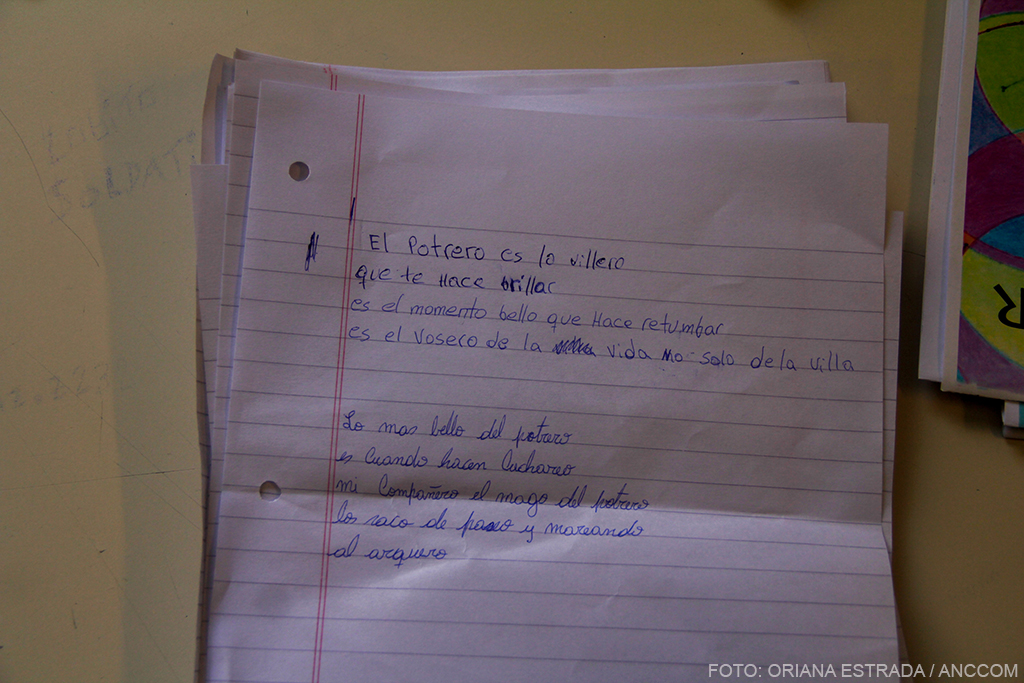 El Potrero es lo villero
que te Hace brillar
es el momento bello que Hace retumbar
es el Vosero de la vida no solo de la villa
Lo mas bello del potrero
es Cuando hacen Cuchareo
mi Compañero el mago del potrero
los saco de paseo y mareando
al arquero
R
FOTO: ORIANA ESTRADA / ANCCOM